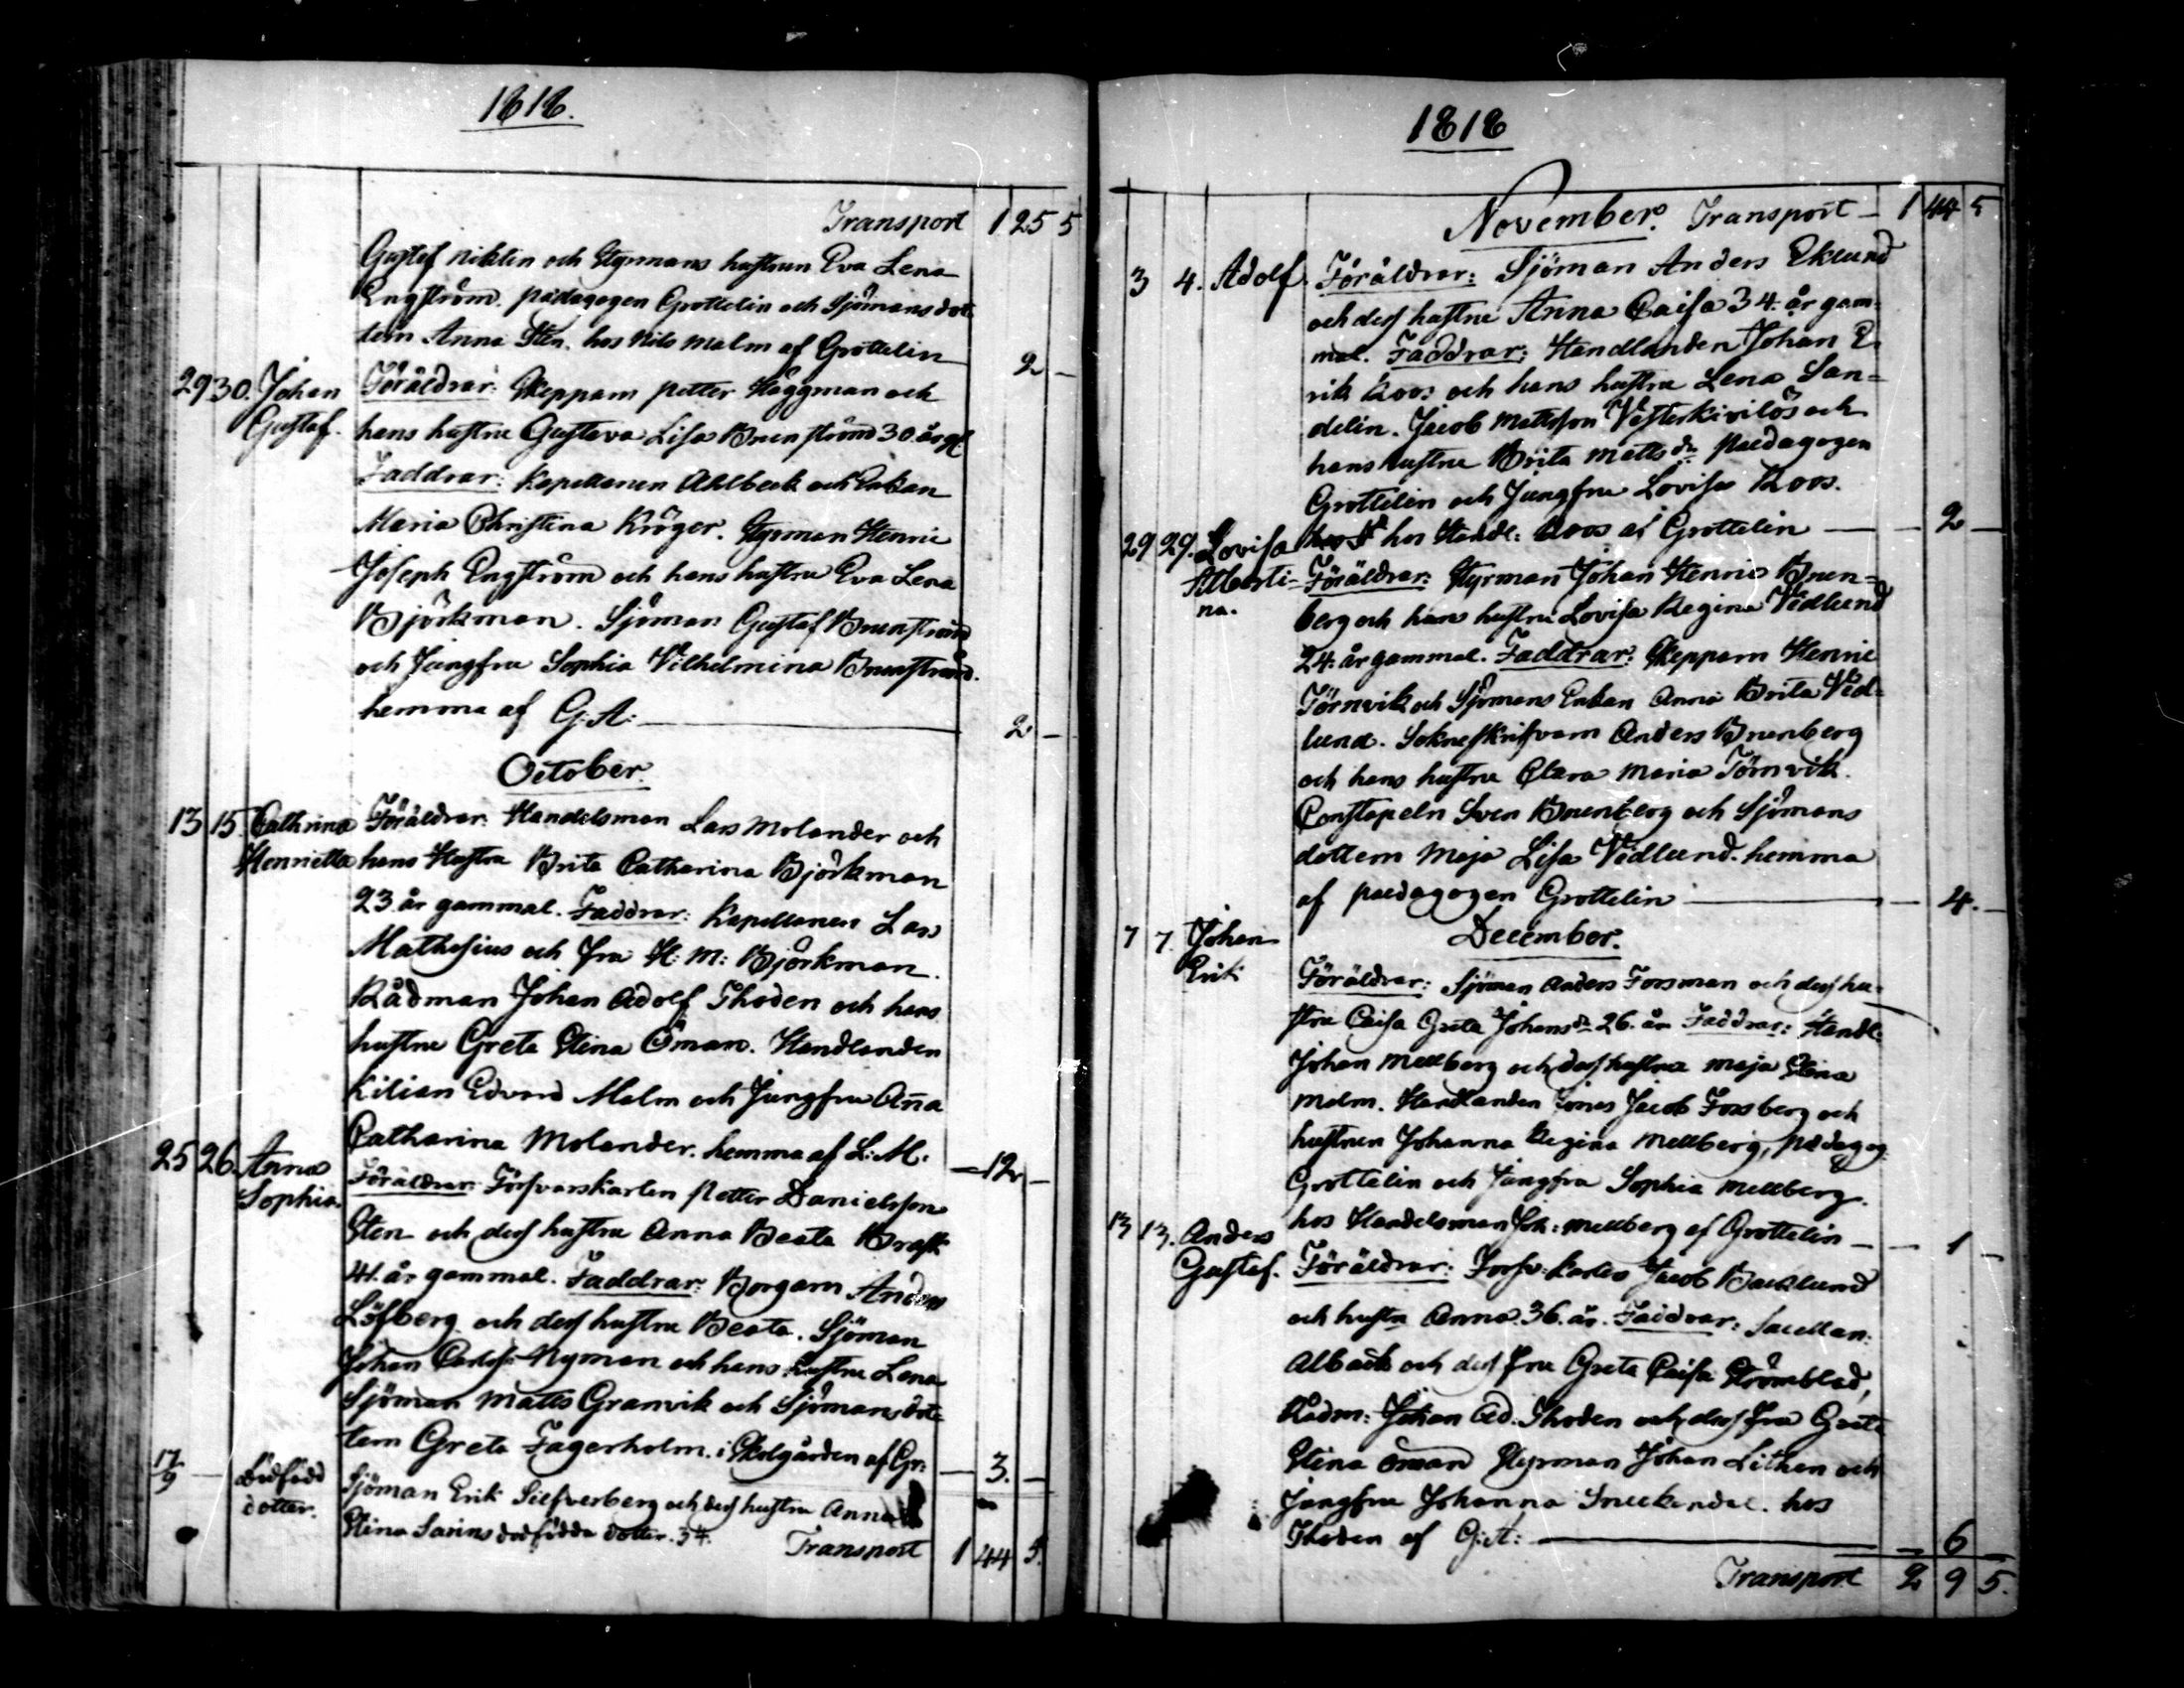 1818.
Transport 1 25 5
Gustef Niklin och Styrmans hustrun Eva Lena
Engström. pædagogen Grottelin och Sjömansdot-
tern Anna Sten. hos Nils Malm af Grottelin 2 -
29 30. Johan Föräldrar: Skepparn Petter Häggman och
Gustaf. hans hustru Gustava Lisa Brunströmd 30 år gl
Faddrar: Kapellanen Ahlbeck och Enkan
Maria Christina Kröger. Styrman Henric
Joseph Engström och hans hustru Eva Lena
Björkman. Sjöman Gustaf Brunströmd
och Jungfru Sophia Vilhelmina Brunströmd.
hemma af G: A: 2 -
October.
13 15. Cathrina Föräldrar: Handelsman Lars Molander och
Henrietta hans Hustru Brita Catharina Björkman
23 år gammal. Faddrar: Kapellanen Lars
Mathesius och fru H: M: Björkman.
Rådman Johan Adolf Thoden och hans
hustru Greta Stina Öman. Handlanden
Kilian Edvard Malm och Jungfru Aña
Catharina Molander. hemma af L: M: - 12 -
25 26. Anna Föräldrar: Försvarskarlen Petter Danielsson
Sophia. Sten och dess hustru Anna Beata Brask
41. år gammal. Faddrar: Borgarn Anders
Löfberg och dess hustru Beata. Sjöman
Johan Carlss: Nyman och hans hustru Lena
Sjöman Matts Granvik och Sjömansdot-
tern Greta Fagerholm. i Skolgården af Gr: - 3. -
17/9 - Dödfödd Sjöman Erik Siefverberg och dess hustru Anna
dotter. Stina Sarins dödfödda dotter. 34.
Transport 1 44 5.
1818
November. Transport - 1 44 5
3 4. Adolf. Föräldrar: Sjöman Anders Eklund
och dess hustru Anna Caisa 34. år gam-
mal. Faddrar: Handlanden Johan E-
rik Roos och hans hustru Lena San=
delin. Jacob Mattsson Vesterkivilös och
hans hustru Brita Matts dr pædagogen
Grottelin och Jungfru Lovisa Roos.
hos Handl: Roos af Grottelin - 2 -
29 29. Lovisa
Alberti- Föräldrar: Styrman Johan Henric Brun=
na. berg och hans hustru Lovisa Regina Vidlund
24. år gammal. Faddrar: Skepparn Henric
Törnvik och Sjömans Enkan Anna Brita Vid-
lund. Sokneskrifvarn Anders Brunberg
och hans hustru Clara Maria Törnvik.
Constapeln Sven Brunberg och Sjömans
dottern Maja Lisa Vidlund. hemma
af pædagogen Grottelin - 4. -
December.
7 7. Johan
Erik Föräldrar: Sjöman Anders Forsman och dess hu-
stru Caisa Greta Johans dr 26. år Faddrar: Handl:
Johan Mellberg och dess hustru Maja Stina
Malm. Handlanden Jonas Jacob Forsberg och
hustrun Johanna Regina Mellberg, Pædagog:
Grottelin och Jungfru Sophia Mellberg.
hos Handelsman Joh: Mellberg af Grottelin - 1 -
13 13. Anders
Gustaf. Föräldrar: Försv: karlen Jacob Backlund
och hustru Anna. 36. år. Faddrar: Sacellan:
Alback och dess fru Greta Caisa Strömblad,
Rådm: Johan Ad. Thoden och dess fru Greta
Stina Öman Styrman Johan Lithen och
Jungfru Johanna Sneckendal. hos
Thoden af G: A: - 6
Transport 2 9 5.